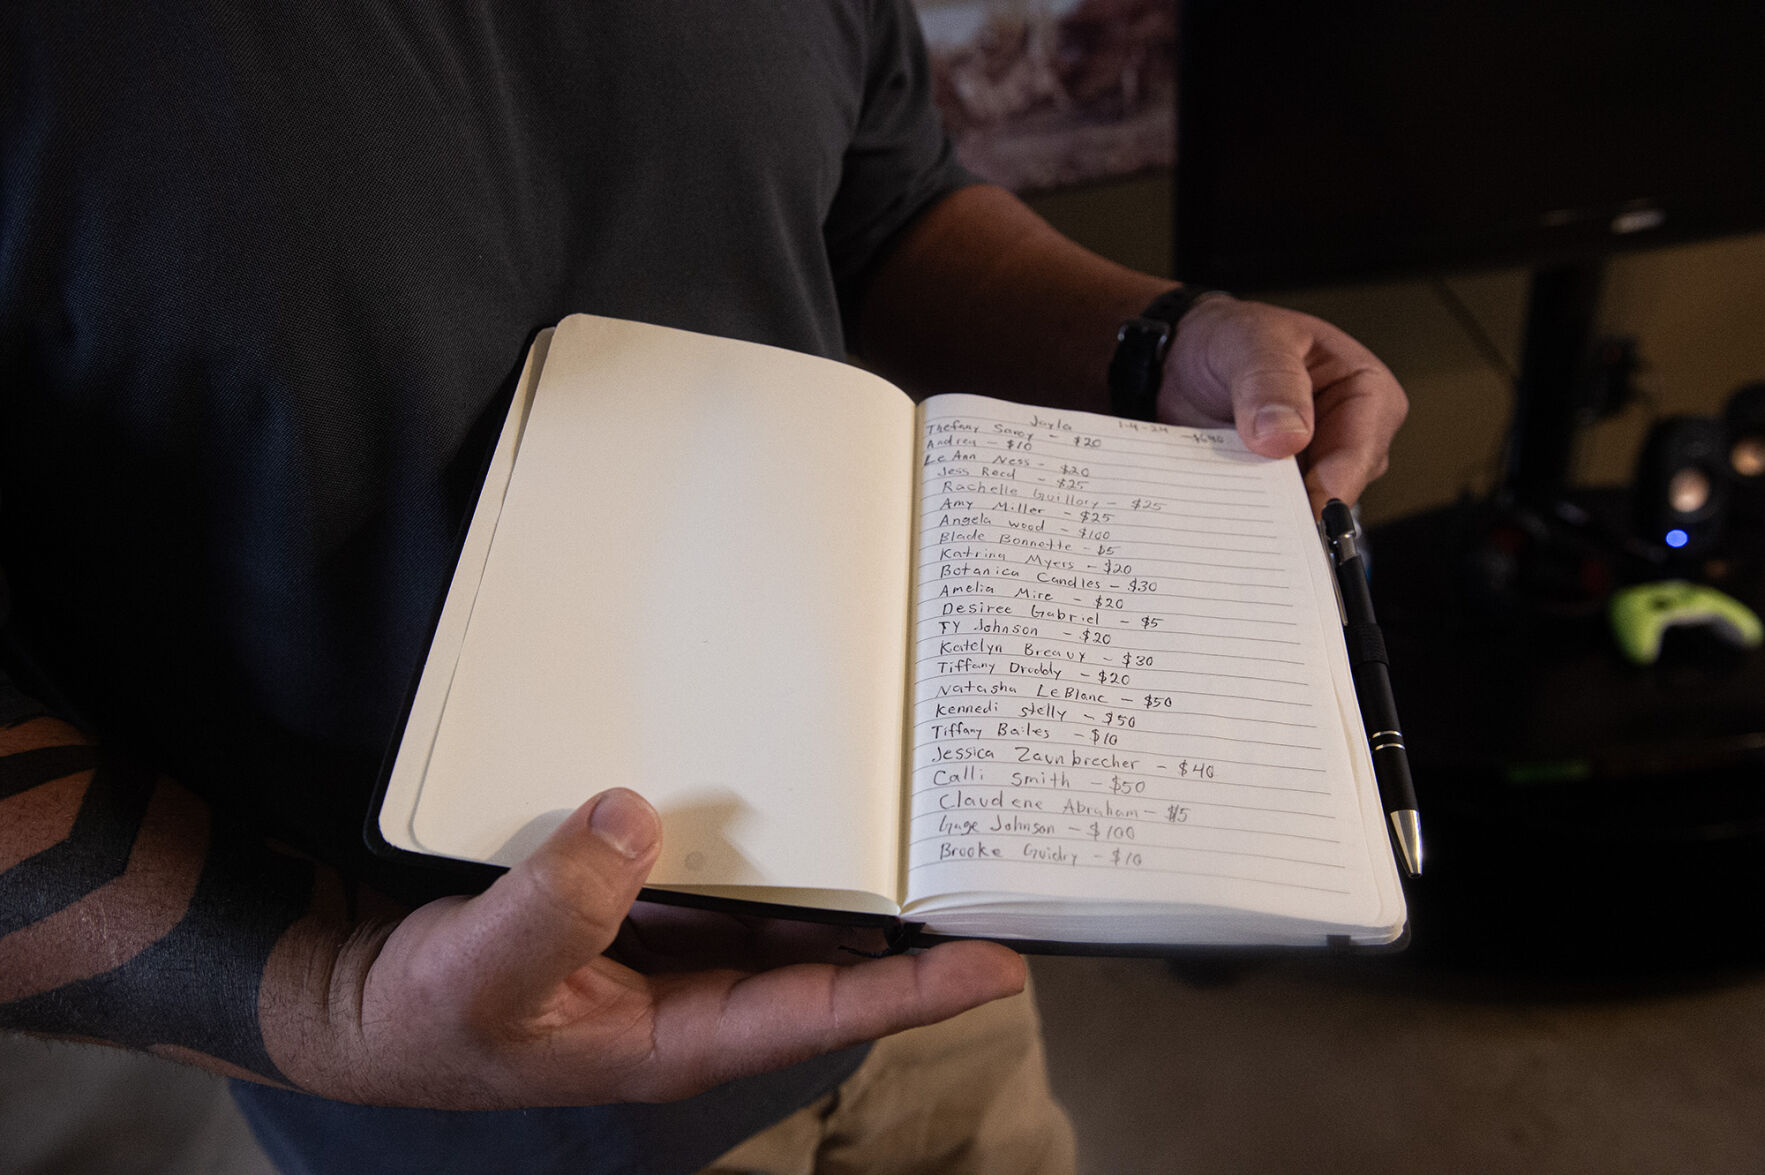 Jayla 1-4-24 - $690
Thefany Savoy - $20
Andrea - $10
LeAnn Ness - $20
Jess Reed - $25
Rachelle Guillory - $25
Amy Miller - $25
Angela Wood - $100
Blade Bonnette - $5
Katrina Myers - $20
Botanica Candles - $30
Amelia Mire - $20
Desiree Gabriel - $5
TY Johnson - $20
Katelyn Breaux - $30
Tiffany Droddy - $20
Natasha LeBlanc - $50
Kennedi Stelly - $50
Tiffany Bailes - $10
Jessica Zaunbrecher - $40
Calli Smith - $50
Claudene Abraham - $5
Gage Johnson - $100
Brooke Guidry - $10